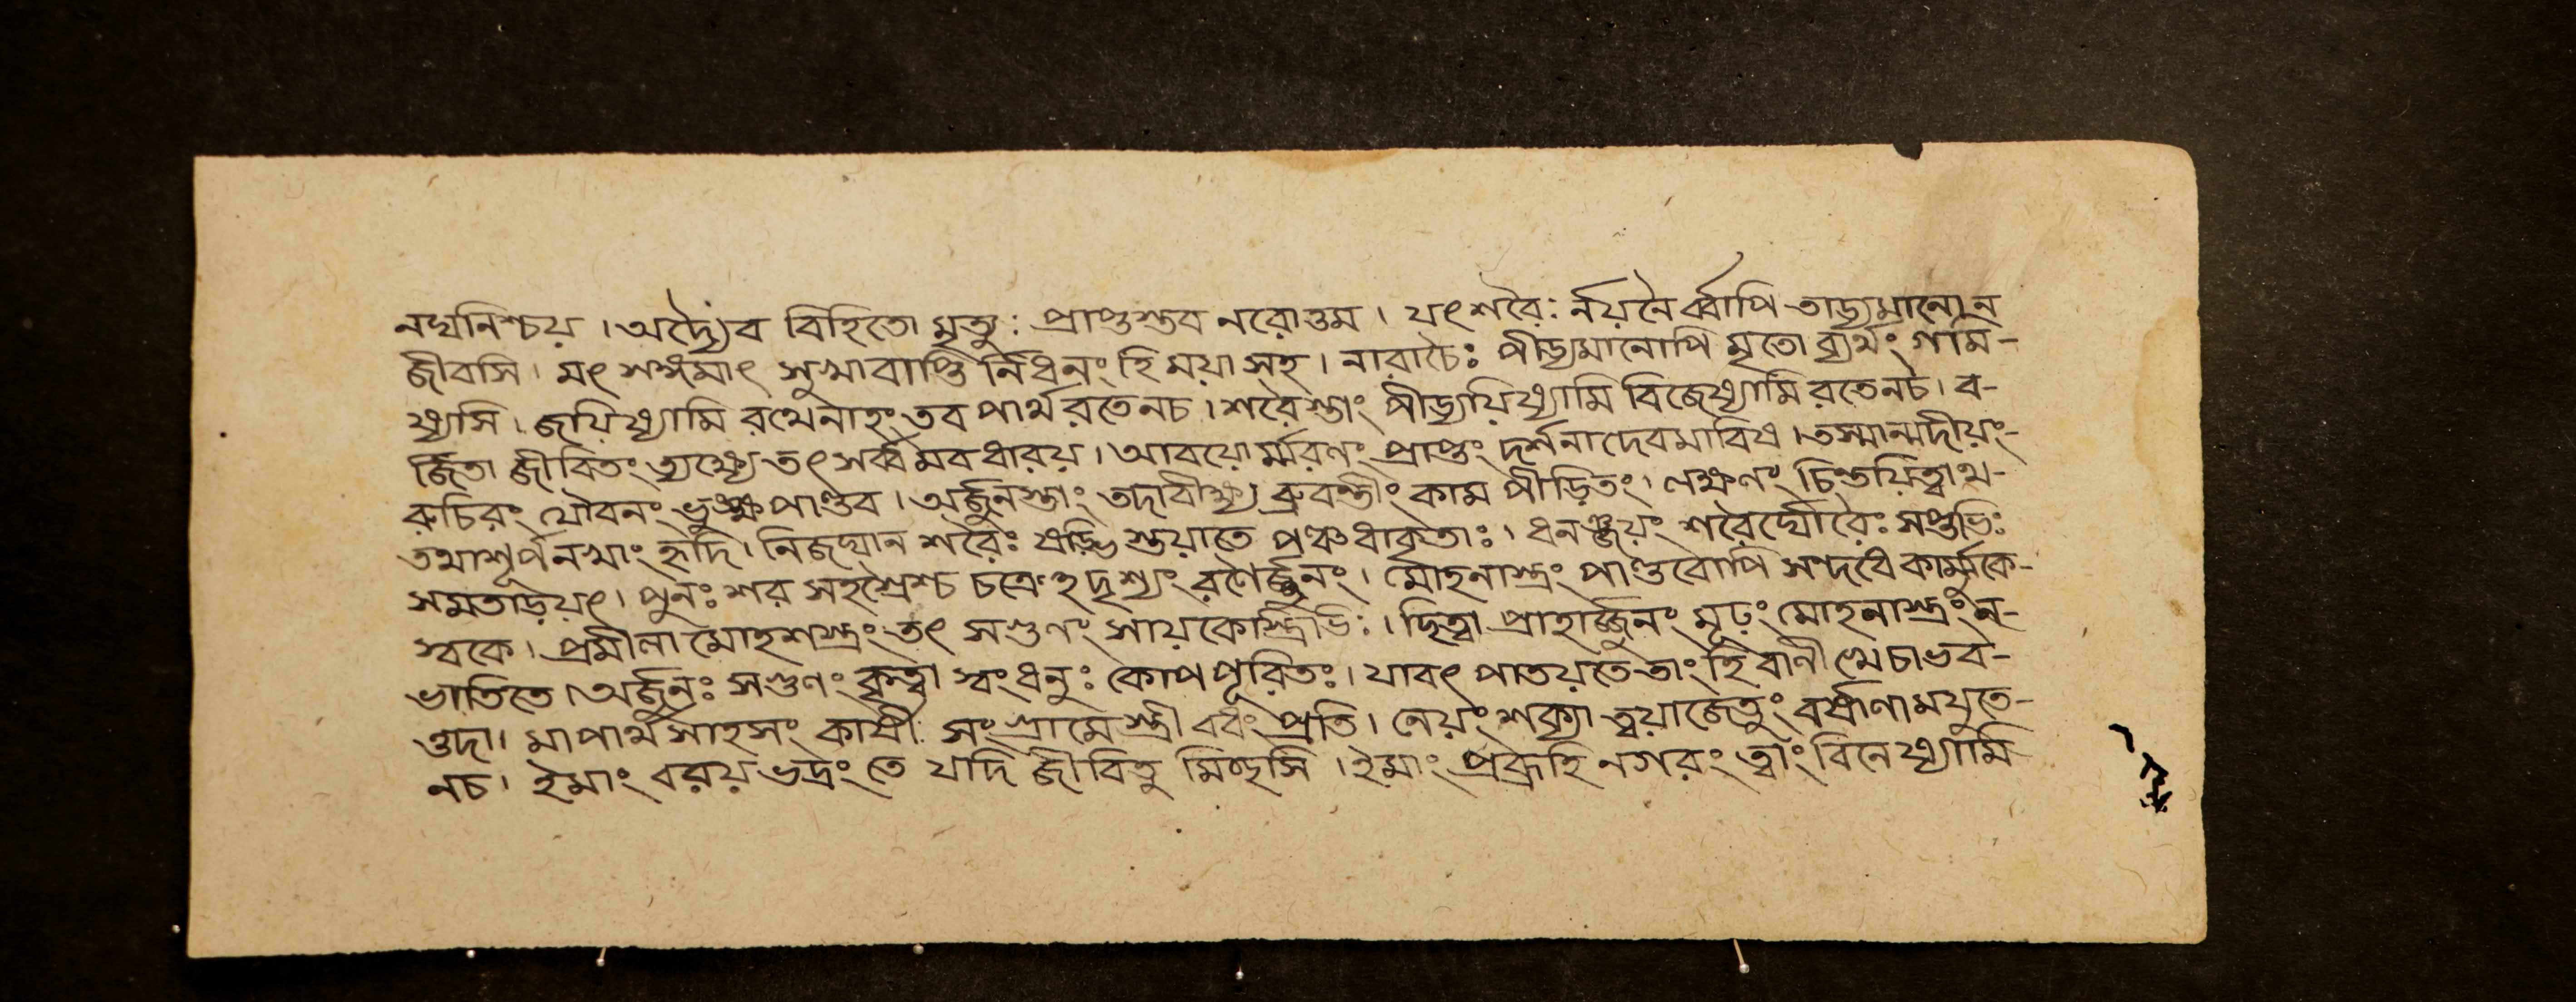 নদ্যনিশ্চয় । অদ্যৈব বিহিতো মৃত্যুঃ প্রাপ্তস্তব নরোত্তম । যৎশরৈঃ র্নয়নৈর্ব্বাপি তাড্যমানো ন
জীবসি । মৎ সঙ্গমাৎ সুখাবাপ্তি র্নিধনং হি ময়া সহ । নারাচৈঃ পীড্যমানোপি মৃতো ব্যর্থং গমি-
ষ্যসি । জয়িষ্যামি রথেনাহং তব পার্থ রতেনচ । শরৈস্ত্বাং পীড্যয়িষ্যামি বিজেষ্যামি রতেনচ । ব-
র্জিতা জীবিতং ত্যক্ষ্যে তৎ সর্ব্বমবধারয় । আবয়ো র্ম্মরণং প্রাপ্তং দর্শনাদেবমাবিশ । তস্মান্মদীয়ং-
রুচিরং যৌবনং ভুঙ্ক্ষ্ব পাণ্ডব । অর্জুনস্তাং তদাবীক্ষ্য ব্রুবন্তীং কাম পীড়িতং । লক্ষণং চিন্তয়িত্বাথ-
তথাশূর্পনখাং হৃদি । নিজঘান শরৈঃ ষড্ভি স্তয়াতে পঞ্চধাকৃতাঃ । ধনঞ্জয়ং শরৈর্ঘোরৈঃ সপ্তভিঃ
সমতাড়য়ৎ । পুনঃ শর সহস্রৈশ্চ চক্রেহদৃশ্যং রণৈর্জ্জুনং । মোহনাস্ত্রং পাণ্ডবোপি সন্দধে কার্ম্মুকে-
স্বকে । প্রমীলা মোহশস্ত্রং তৎ সগুণং সায়কৈস্ত্রিভিঃ । ছিত্বা প্রাহার্জ্জুনং মূঢ়ং মোহনাস্ত্রং ন-
ভাতিতে । অর্জুনঃ সগুণং কৃত্বা স্বং ধনুঃ কোপ পূরিতঃ । যাবৎ পাতয়তে তাং হি বাণী খেচাভব-
ত্তদা । মাপার্থ সাহসং কার্ষী সংগ্রামে স্ত্রী বধং প্রতি । নেয়ং শক্যা ত্বয়াজেতুং বর্ষাণামযুতে-
নচ । ইমাং বরয় ভদ্রং তে যদি জীবিতু মিচ্ছসি । ইমাং নগরং ত্বাং বিনেষ্যামি